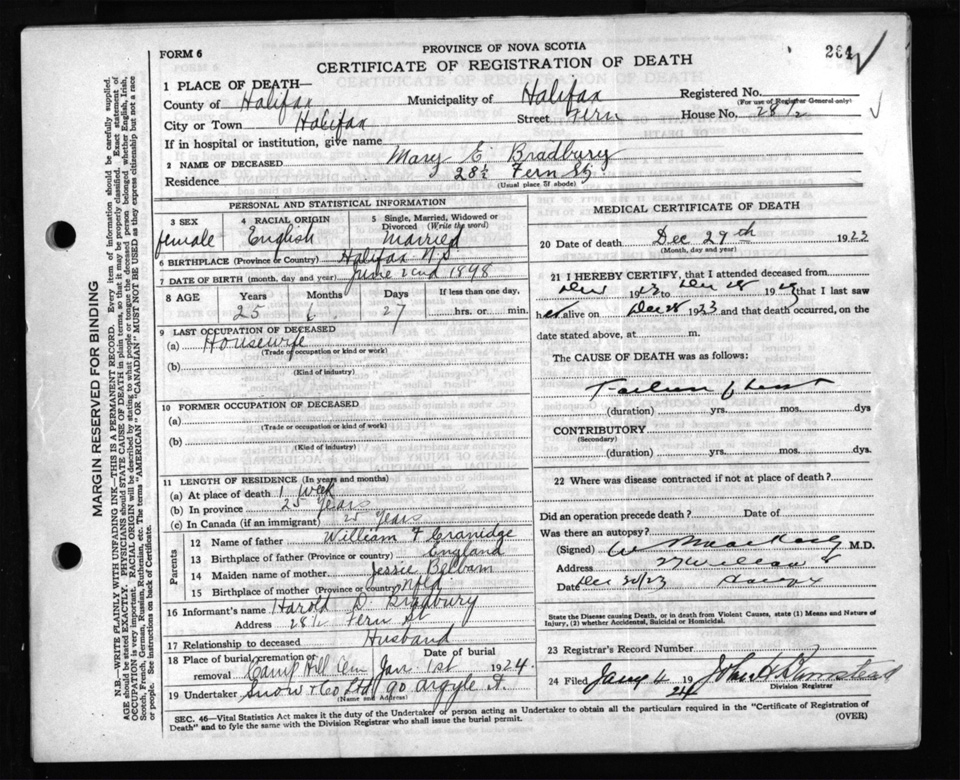 FORM 6
PROVINCE OF NOVA SCOTIA
264
CERTIFICATE OF REGISTRATION OF DEATH
1 PLACE OF DEATH—
County of Halifax Municipality of Halifax Registered No.
(For use of Registrar General only)
City or Town Halifax Street Fern House No. 28 1/2
If in hospital or institution, give name
2 NAME OF DECEASED Mary E. Bradbury
Residence 28½ Fern St
(Usual place of abode)
PERSONAL AND STATISTICAL INFORMATION
3 SEX female
4 RACIAL ORIGIN English
5 Single, Married, Widowed or Divorced (Write the word) Married
6 BIRTHPLACE (Province or Country) Halifax N.S.
7 DATE OF BIRTH (month, day and year) June 2nd 1898
8 AGE Years Months Days If less than one day,
25 6 27 hrs. or min.
9 LAST OCCUPATION OF DECEASED
(a) Housewife
(Trade or occupation or kind or work)
(b)
(Kind of industry)
10 FORMER OCCUPATION OF DECEASED
(a)
(Trade or occupation or kind or work)
(b)
(Kind of industry)
11 LENGTH OF RESIDENCE (In years and months)
(a) At place of death 1 week
(b) In province 25 years
(c) In Canada (if an immigrant) 25 years
Parents
12 Name of father William F Cranidge
13 Birthplace of father (Province or country) England
14 Maiden name of mother Jessie
15 Birthplace of mother (Province or country) Nfld.
16 Informant's name Harold D. Bradbury
Address 28 1/2 Fern St
17 Relationship to deceased Husband
18 Place of burial, cremation or removal Camp Hill Cem Date of burial Jan 1st 1924.
19 Undertaker Snow & Co Ltd 90 Argyle St.
(Name and Address)
MEDICAL CERTIFICATE OF DEATH
20 Date of death Dec 29th 1923
(Month, day and year)
21 I HEREBY CERTIFY, that I attended deceased from
1923 Dec 28 1923 that I last saw
her alive on Dec 28 1923 and that death occurred, on the
date stated above, at m.
The CAUSE OF DEATH was as follows:
(duration) yrs. mos. dys
CONTRIBUTORY
(Secondary)
(duration) yrs. mos. dys
22 Where was disease contracted if not at place of death?
Did an operation precede death? Date of
Was there an autopsy?
(Signed) M.D.
Address
Date Dec 30/23
State the Disease causing Death, or in death from Violent Causes, state (1) Means and Nature of
Injury, (2) whether Accidental, Suicidal or Homicidal.
23 Registrar's Record Number
24 Filed Jany 4 1924 John H
Division Registrar
SEC. 46—Vital Statistics Act makes it the duty of the Undertaker or person acting as Undertaker to obtain all the particulars required in the "Certificate of Registration of
Death" and to fyle the same with the Division Registrar who shall issue the burial permit.
(OVER)
MARGIN RESERVED FOR BINDING
N.B.—WRITE PLAINLY WITH UNFADING INK—THIS IS A PERMANENT RECORD. Every item of information should be carefully supplied.
AGE should be stated EXACTLY. PHYSICIANS should STATE CAUSE OF DEATH in plain terms, so that it may be properly classified. Exact statement of
OCCUPATION is very important. RACIAL ORIGIN will be described by stating to what people or tongue the deceased person belonged whether English, Irish,
Scotch, French, German, Russian, Ruthenian, etc. The terms "AMERICAN" OR "CANADIAN" MUST NOT BE USED as they express citizenship but not a race
or people. See instructions on back of Certificate.